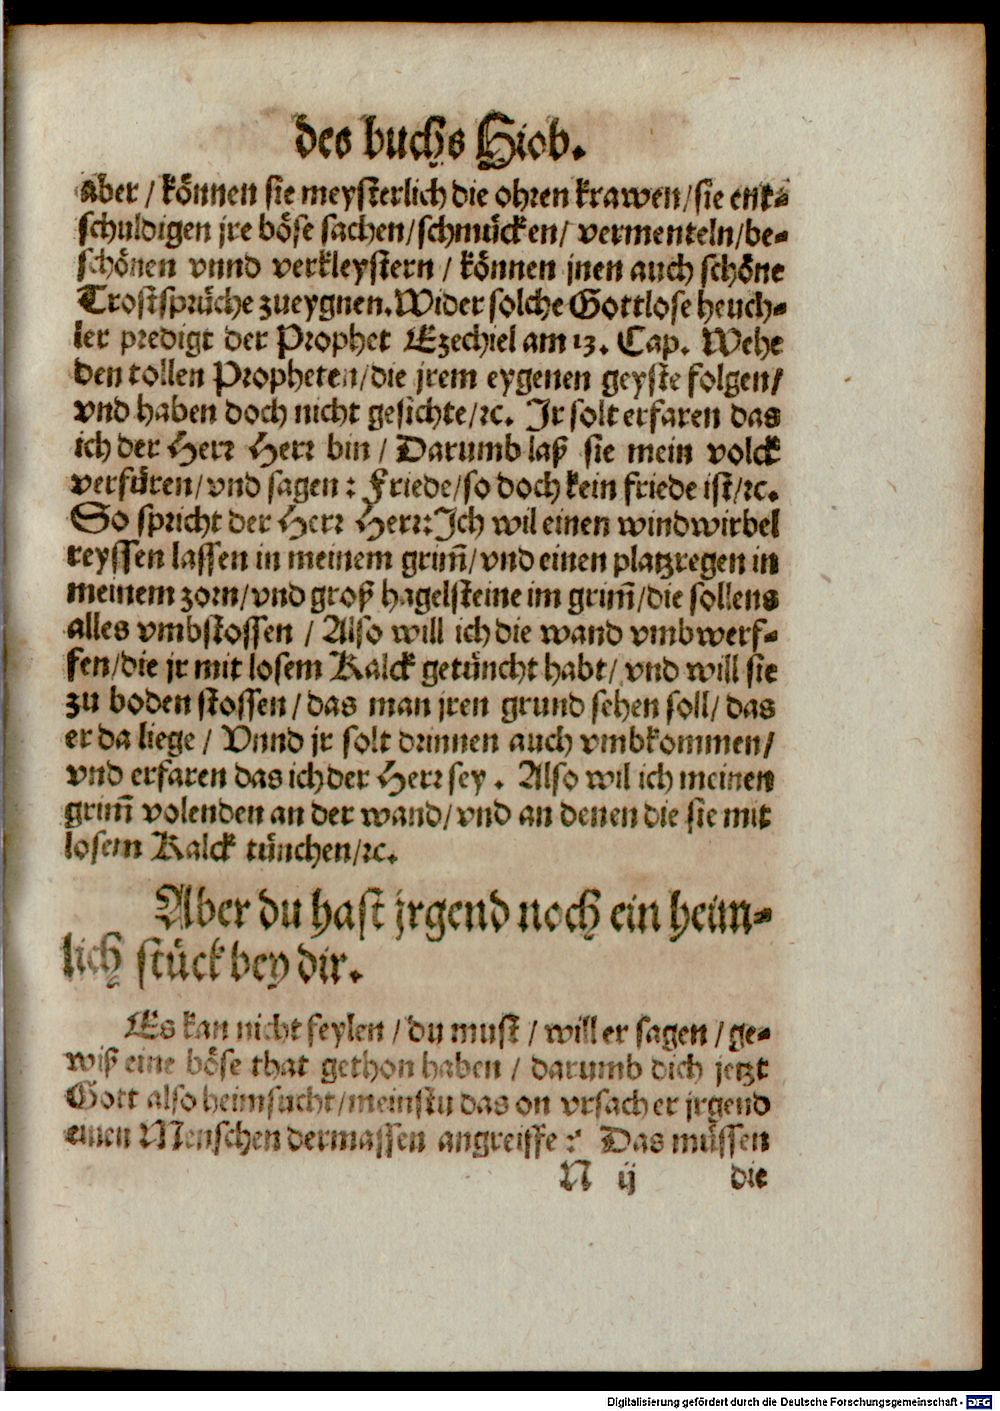 des buchs Hiob.
aber / können sie meysterlich die ohren krawen/sie ent-
schuldigen jre böse sachen/schmücken/ vermenteln/be-
schönen vnnd verkleystern / können jnen auch schöne
Trostsprüche zueygnen. Wider solche Gottlose heuch-
ler predigt der Prophet Ezechiel am 13. Cap. Wehe
den tollen Propheten/die jrem eygenen geyste folgen/
vnd haben doch nicht gesichte/ꝛc. Jr solt erfaren das
ich der Herr Herr bin / Darumb laß sie mein volck
verfüren/vnd sagen: Friede/so doch kein friede ist/ꝛc.
So spricht der Herr Herr: Ich wil einen windwirbel
reyssen lassen in meinem grim̃/vnd einen platzregen in
meinem zorn/vnd groß hagelsteine im grim̃/die sollens
alles vmbstossen / Also will ich die wand vmbwerf-
fen/die jr mit losem Kalck getüncht habt/ vnd will sie
zu boden stossen / das man jren grund sehen soll/ das
er da liege / Vnnd jr solt drinnen auch vmbkommen/
vnd erfaren das ich der Herr sey. Also wil ich meinen
grim̃ volenden an der wand/vnd an denen die sie mit
losem Kalck tünchen/ꝛc.
Aber du hast jrgend noch ein heim-
lich stück bey dir.
Es kan nicht feylen / du must / will er sagen / ge-
wiß eine böse that gethon haben / darumb dich jetzt
Gott also heimsucht/meinstu das on vrsach er jrgend
einen Menschen dermassen angreiffe? Das müssen
N ij die
Digitalisierung gefördert durch die Deutsche Forschungsgemeinschaft - DFG